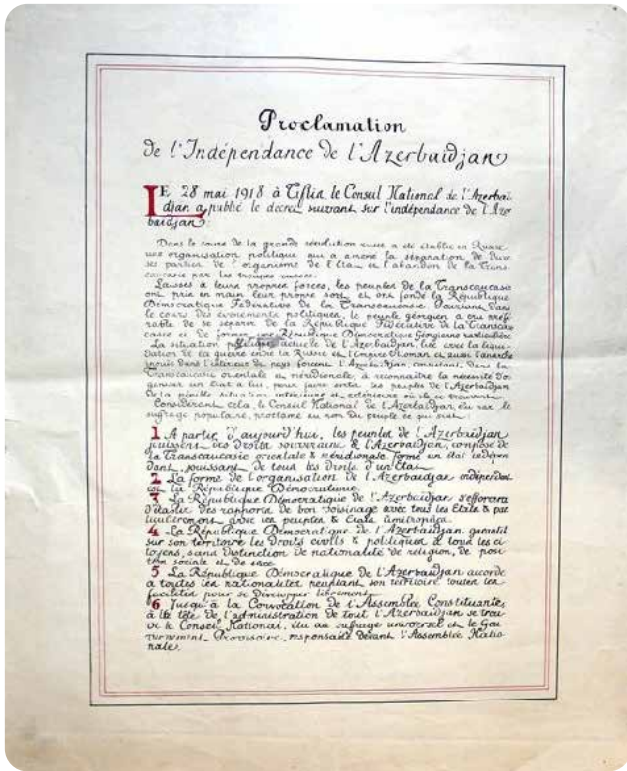 Proclamation
de l'Indépendance de l'Azerbaïdjan
LE 28 mai 1918 à Tiflis le Conseil National de l'Azerbaï-
djan a publié le décret suivant sur l'indépendance de l'Azer
baïdjan:
Dans le cours de la grande révolution russe a été établie en Russie
une organisation politique qui a amené la séparation de
ses parties de l'organisme de l'État et l'abandon de la Trans-
caucasie par les troupes russes.
Laissés à leurs propres forces, les peuples de la Transcaucasie
ont pris en main leur propre sort et ont fondé la République
Démocratique Fédérative de la Transcaucasie
le cours des évènements politiques, le peuple géorgien a cru préf-
rable de se séparer de la République Fédérative de la Transcau-
casie et de former une République Démocratique Géorgienne
La situation politique actuelle de l'Azerbaïdjan, avec la liqui-
dation de la guerre entre la Russie et l'Empire Ottoman et aussi l'anarchie
dans l'intérieur du pays forcent l'Azerbaïdjan, dans la
Transcaucasie orientale et méridionale, à reconnaître la nécessité d'or-
ganiser un État à lui, pour faire sortir les peuples de l'Azerbaïdjan
de la pénible situation intérieure et extérieure où ils se trouvent.
Considérant cela, le Conseil National de l'Azerbaïdjan, élu par le
suffrage populaire, proclame au nom du peuple ce qui suit:
1 A partir d'aujourd'hui, les peuples de l'Azerbaïdjan
jouissent des droits souverains & l'Azerbaïdjan, composé de
la Transcaucasie orientale & méridionale forme un état indépen
dant, jouissant de tous les droits d'un État.
2 La forme de l'organisation de l'Azerbaïdjan indépendant
est la République Démocratique.
3 La République Démocratique de l'Azerbaïdjan s'efforcera
d'établir des rapports de bon voisinage avec tous les États & par
ticulièrement avec les peuples & États limitrophes.
4 La République Démocratique de l'Azerbaïdjan garantit
sur son territoire les droits civils & politiques à tous les ci-
toyens, sans distinction de nationalité de religion, de posi
tion sociale et de sexe
5 La République Démocratique de l'Azerbaïdjan accorde
à toutes les nationalités peuplant son territoire toutes les
facilités pour se développer librement
6 Jusqu'à la Convocation de l'Assemblée Constituante,
à la tête de l'administration de tout l'Azerbaïdjan se trou
ve le Conseil National, élu au suffrage universel et le Gou
vernement Provisoire, responsable devant l'Assemblée Natio-
nale.